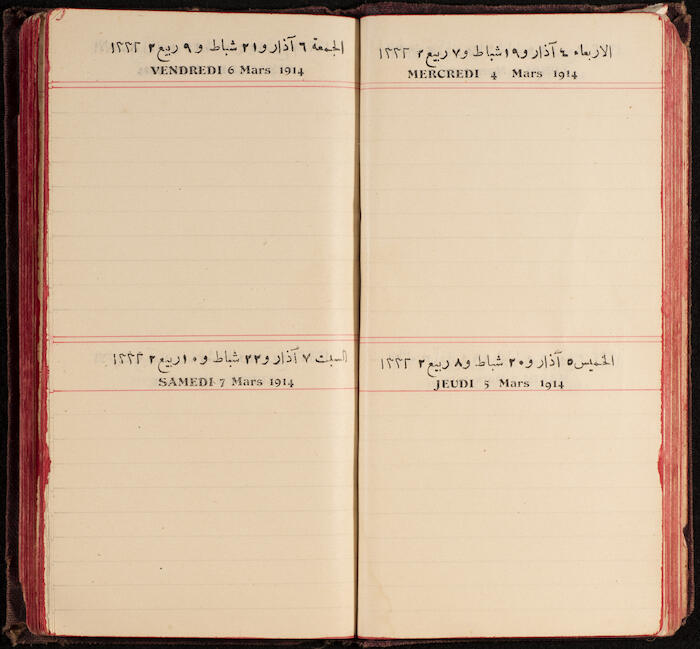 الاربعاء ٤ آذار و١٩ شباط و٧ ربيع ٢ ١٣٣٢
MERCREDI 4 Mars 1914
الخميس ٥ آذار و٢٠ شباط و٨ ربيع ٢ ١٣٣٢
JEUDI 5 Mars 1914
الجمعة ٦ آذار و٢١ شباط و٩ ربيع ٢ ١٣٣٢
VENDREDI 6 Mars 1914
السبت ٧ آذار و٢٢ شباط و١٠ ربيع ٢ ١٣٣٢
SAMEDI 7 Mars 1914